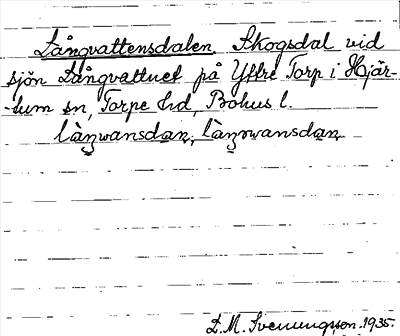 Långvattensdalen, Skogsdal vid
sjön Långvattnet på Yttre Torp i Hjär-
-tum sn, Torpe hd, Bohus l.
làŋwansdan, làŋwansdan
D. M. Svenungsson. 1935.